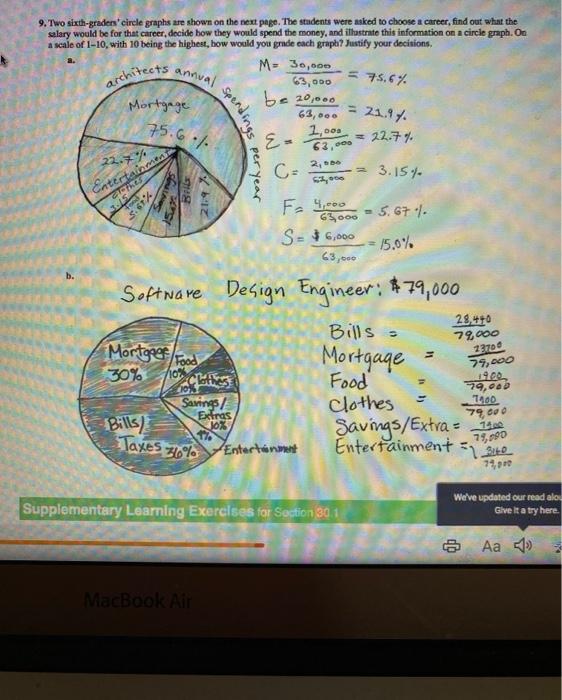 9. Two sixth-graders' circle graphs are shown on the next page. The students were asked to choose a career, find out what the
salary would be for that career, decide how they would spend the money, and illustrate this information on a circle graph. On
a scale of 1–10, with 10 being the highest, how would you grade each graph? Justify your decisions.
a.
architects annual spendings per year
Mortgage
75.6 %
22.7%
Entertainment
Clothes
3.15%
Food
5.67%
Savings
15.0%
Bills
21.9 %
M= 30,000 / 63,000 = 75.6%
b= 20,000 / 63,000 = 21.9%
E= 1,000 / 63,000 = 22.7%
C= 2,000 / 63,000 = 3.15%
F= 4,000 / 63,000 = 5.67%
S= $6,000 / 63,000 = 15.0%
b.
Software Design Engineer: $79,000
Mortgage
30%
Food
10%
Clothes
10%
Savings/
Extras
10%
4%
Entertainment
Bills/
Taxes 36%
Bills = 28,440 / 79,000
Mortgage = 23700 / 79,000
Food = 7900 / 79,000
Clothes = 7900 / 79,000
Savings/Extra = 7900 / 79,000
Entertainment = 3160 / 79,000
Supplementary Learning Exercises for Section 30.1
We've updated our read alou
Give it a try here.
Aa
MacBook Air